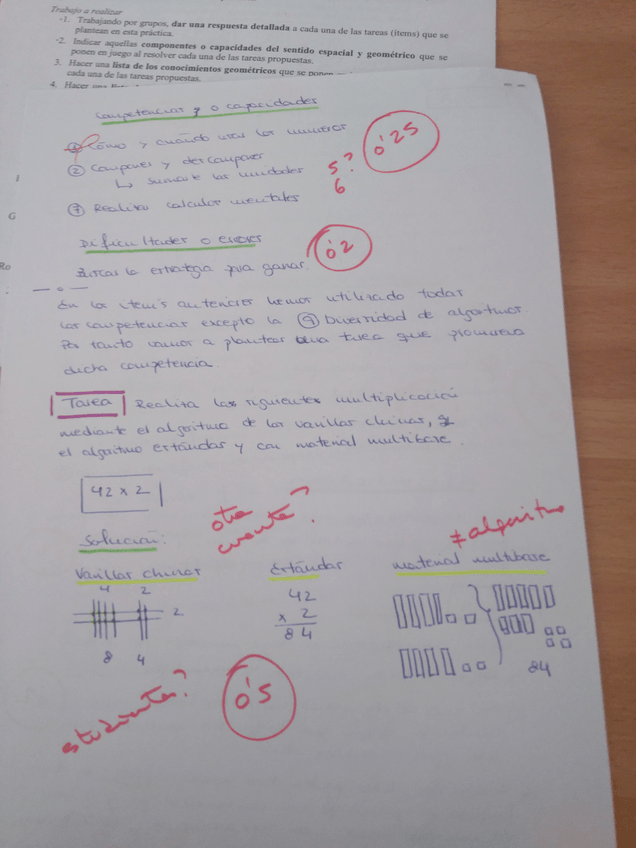 Trabajo a realizar
1. Trabajando por grupos, dar una respuesta detallada a cada una de las tareas (ítems) que se
plantean en esta práctica.
2. Indicar aquellas componentes o capacidades del sentido espacial y geométrico que se
ponen en juego al resolver cada una de las tareas propuestas.
3. Hacer una lista de los conocimientos geométricos que se ponen
cada una de las tareas propuestas.
4. Hacer una
Competencias y o capacidades
① Cómo y cuándo usar los números
0'25
② Componer y descomponer
5?
↳ sumarle las unidades
6
⑦ Realizar calculos mentales
I
G
Ro
Dificultades o errores
0'2
Buscar la estrategia para ganar.
En los items anteriores hemos utilizado todas
las competencias excepto la ⑨ Diversidad de algoritmos.
Por tanto vamos a plantear una tarea que promueva
dicha competencia.
Tarea Realiza las siguientes multiplicación
mediante el algoritmo de las varillas chinas,
el algoritmo estándar y con material multibase.
42 x 2
otra
cuenta?
≠ algoritmo
Solución:
Varillas chinas Estándar material multibase
4 2
2
8 4
42
x 2
84
84
estudiantes?
0'5